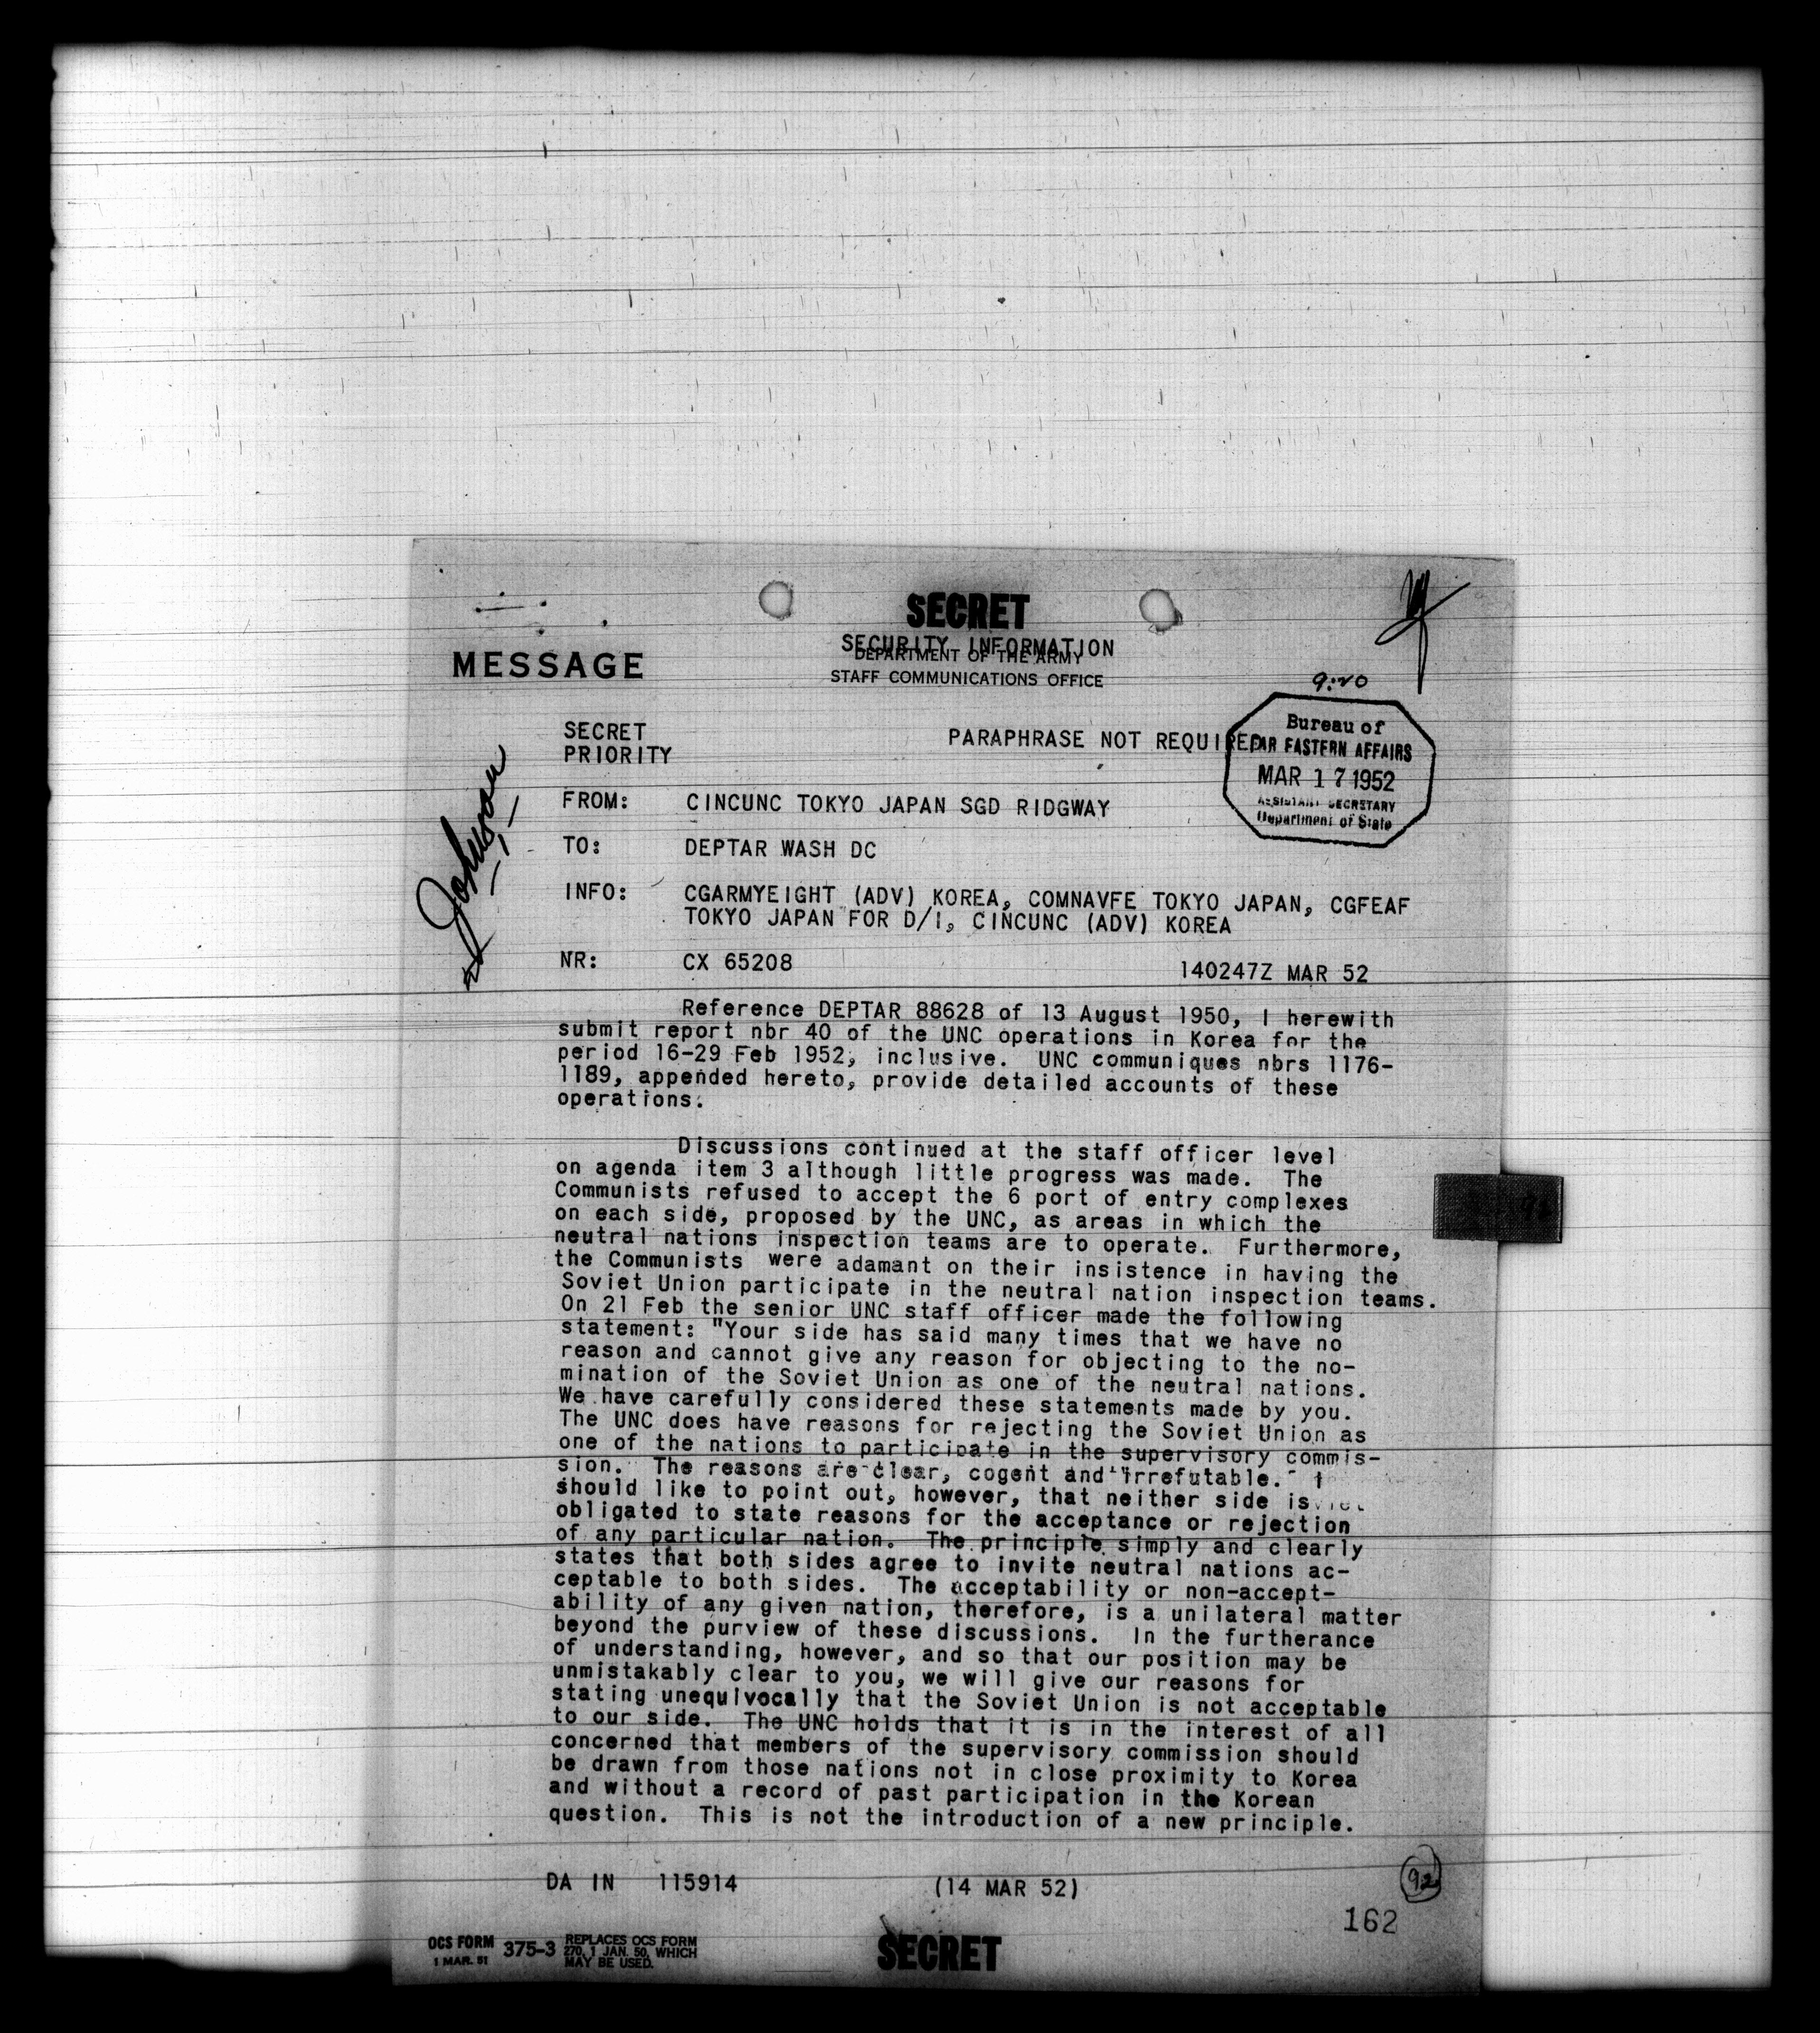 SECRET
SECURITY INFORMATION
MESSAGE
DEPARTMENT OF THE ARMY
STAFF COMMUNICATIONS OFFICE
9:20
SECRET
PRIORITY
PARAPHRASE NOT REQUIRED
Bureau of
FAR EASTERN AFFAIRS
MAR 17 1952
ASSISTANT SECRETARY
Department of State
Johnson
FROM: CINCUNC TOKYO JAPAN SGD RIDGWAY
TO: DEPTAR WASH DC
INFO: CGARMYEIGHT (ADV) KOREA, COMNAVFE TOKYO JAPAN, CGFEAF
TOKYO JAPAN FOR D/I, CINCUNC (ADV) KOREA
NR: CX 65208 140247Z MAR 52
Reference DEPTAR 88628 of 13 August 1950, I herewith
submit report nbr 40 of the UNC operations in Korea for the
period 16-29 Feb 1952, inclusive. UNC communiques nbrs 1176-
1189, appended hereto, provide detailed accounts of these
operations.
Discussions continued at the staff officer level
on agenda item 3 although little progress was made. The
Communists refused to accept the 6 port of entry complexes
on each side, proposed by the UNC, as areas in which the
neutral nations inspection teams are to operate. Furthermore,
the Communists were adamant on their insistence in having the
Soviet Union participate in the neutral nation inspection teams.
On 21 Feb the senior UNC staff officer made the following
statement: "Your side has said many times that we have no
reason and cannot give any reason for objecting to the no-
mination of the Soviet Union as one of the neutral nations.
We have carefully considered these statements made by you.
The UNC does have reasons for rejecting the Soviet Union as
one of the nations to participate in the supervisory commis-
sion. The reasons are clear, cogent and irrefutable. I
should like to point out, however, that neither side is
obligated to state reasons for the acceptance or rejection
of any particular nation. The principle simply and clearly
states that both sides agree to invite neutral nations ac-
ceptable to both sides. The acceptability or non-accept-
ability of any given nation, therefore, is a unilateral matter
beyond the purview of these discussions. In the furtherance
of understanding, however, and so that our position may be
unmistakably clear to you, we will give our reasons for
stating unequivocally that the Soviet Union is not acceptable
to our side. The UNC holds that it is in the interest of all
concerned that members of the supervisory commission should
be drawn from those nations not in close proximity to Korea
and without a record of past participation in the Korean
question. This is not the introduction of a new principle.
DA IN 115914 (14 MAR 52)
92
162
OCS FORM 375-3 REPLACES OCS FORM
1 MAR. 51 270, 1 JAN. 50, WHICH
MAY BE USED.
SECRET